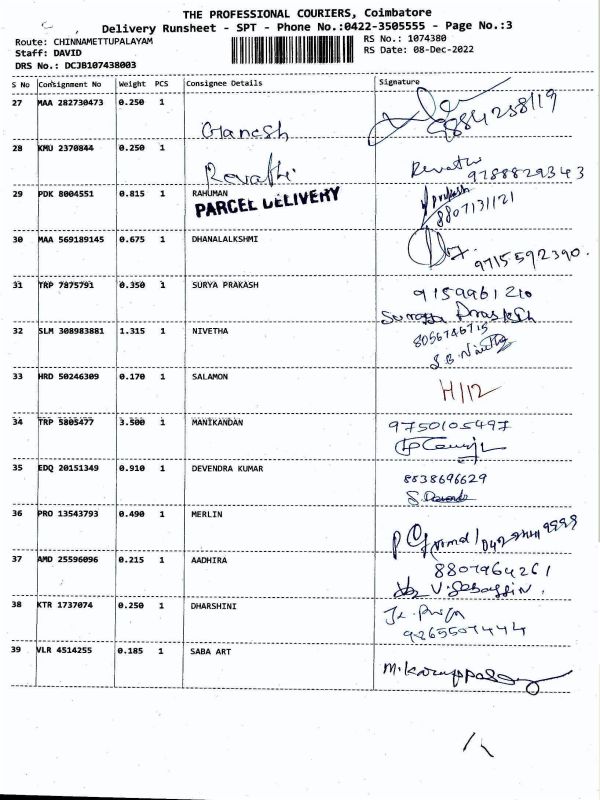 THE PROFESSIONAL COURIERS, Coimbatore
Delivery Runsheet - SPT - Phone No.:0422-3505555 - Page No.:3
Route: CHINNAMETTUPALAYAM
Staff: DAVID
DRS No.: DCJB107438003
RS No.: 1074380
RS Date: 08-Dec-2022
S No Consignment No Weight PCS Consignee Details Signature
27 MAA 282730473 0.250 1 Ganesh
28 KMU 2370844 0.250 1 Revathi Revathi
9788829343
29 PDK 8004551 0.815 1 RAHUMAN Prakash
PARCEL DELIVERY 8807131121
30 MAA 569189145 0.675 1 DHANALALKSHMI
9715592390.
31 TRP 7875791 0.350 1 SURYA PRAKASH 9159961210
32 SLM 308983881 1.315 1 NIVETHA 8056746715
33 HRD 50246309 0.170 1 SALAMON H/12
34 TRP 5805477 3.500 1 MANIKANDAN 9750105497
35 EDQ 20151349 0.910 1 DEVENDRA KUMAR 8838696629
36 PRO 13543793 0.490 1 MERLIN
37 AMD 25596096 0.215 1 AADHIRA 8807964261
38 KTR 1737074 0.250 1 DHARSHINI
9265507444
39 VLR 4514255 0.185 1 SABA ART